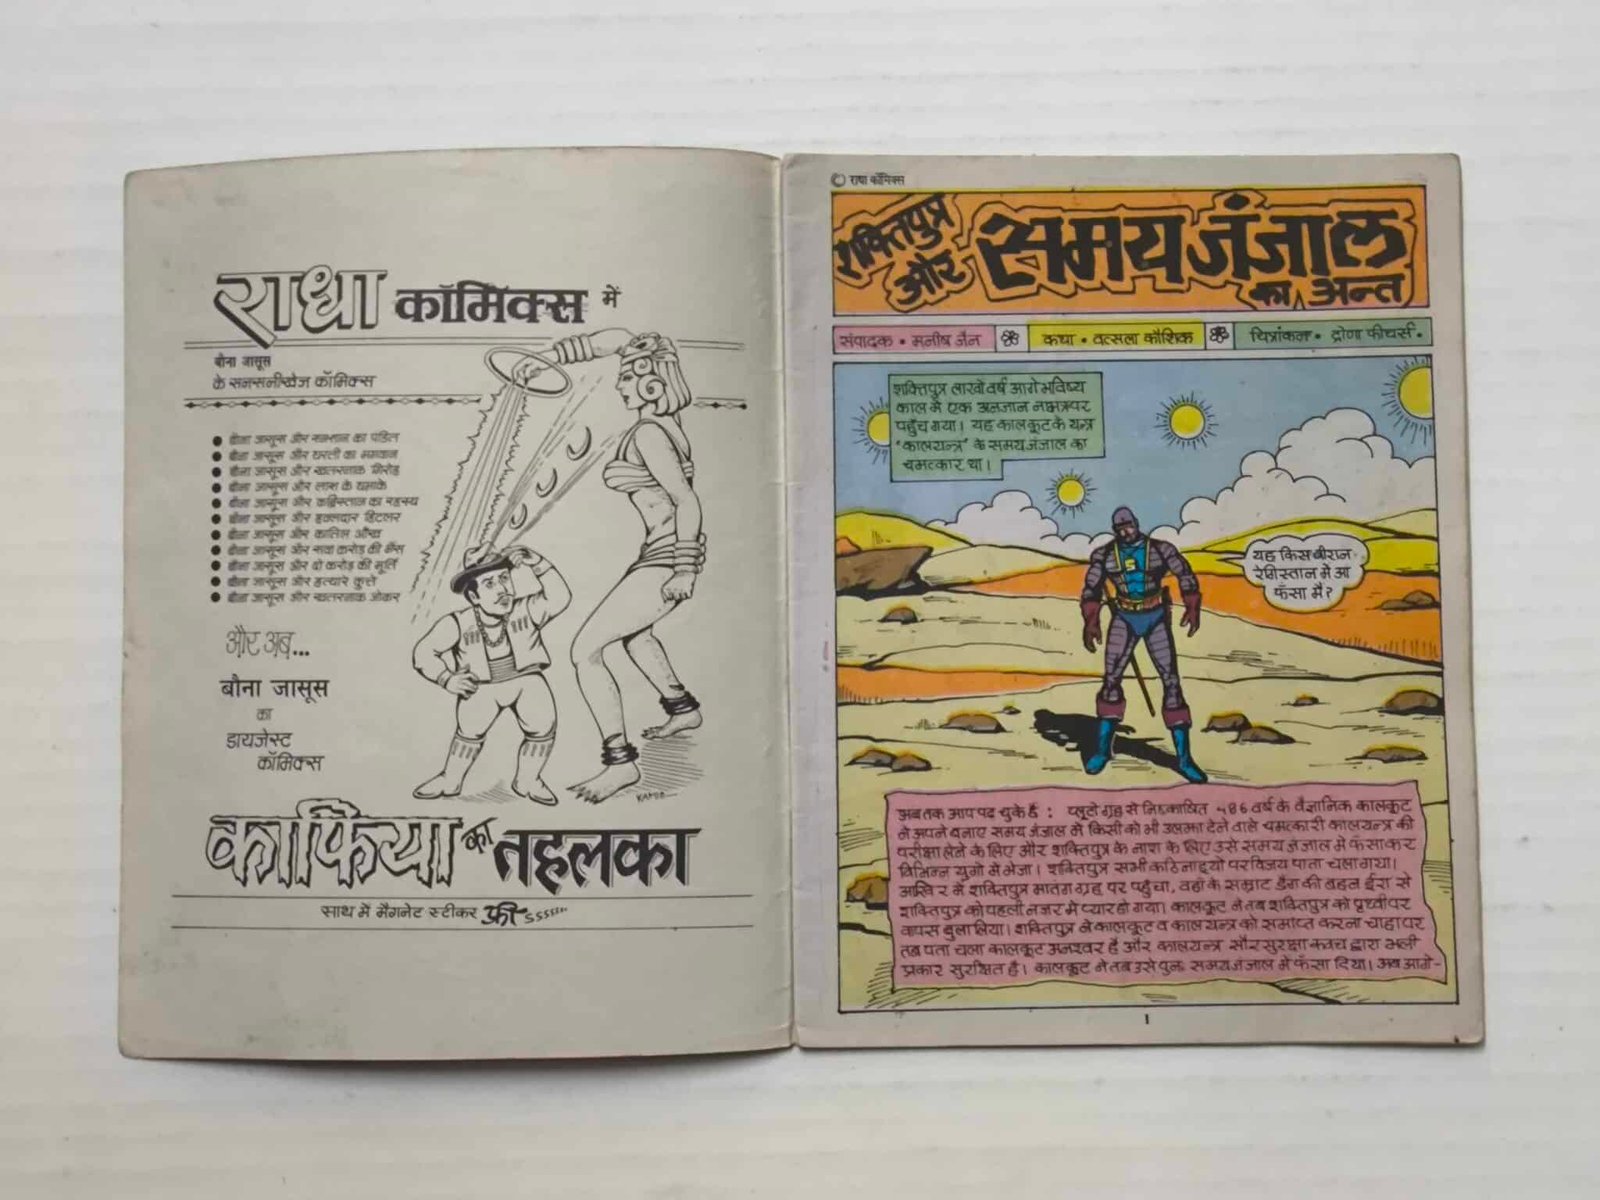 राधा कॉमिक्स में
बौना जासूस
के सनसनीखेज कॉमिक्स
बौना जासूस और शमशान का पंडित
बौना जासूस और धरती का भगवान
बौना जासूस और खतरनाक गिरोह
बौना जासूस और लाश के धमाके
बौना जासूस और कब्रिस्तान का रहस्य
बौना जासूस और हवलदार हिटलर
बौना जासूस और कातिल आँख
बौना जासूस और सवा करोड़ की भैंस
बौना जासूस और दो करोड़ की मूर्ति
बौना जासूस और हत्यारे कुत्ते
बौना जासूस और खतरनाक जोकर
और अब...
बौना जासूस
का
डायजेस्ट
कॉमिक्स
काफिया का तहलका
साथ में मैगनेट स्टीकर फ्री sssss
© राधा कॉमिक्स
शक्तिपुत्र और समय जंजाल का अन्त
संपादक • मनीष जैन
कथा • वत्सला कौशिक
चित्रांकन • द्रोणा फीचर्स •
शक्तिपुत्र लाखों वर्ष आगे भविष्य
काल में एक अनजान नक्षत्र पर
पहुँच गया। यह कालकूट के यन्त्र
"कालयन्त्र" के समय जंजाल का
चमत्कार था।
यह किस वीरान
रेगिस्तान में आ
फँसा मैं?
अब तक आप पढ़ चुके हैं : प्लूटो ग्रह से निष्काषित 486 वर्ष के वैज्ञानिक कालकूट
ने अपने बनाए समय जंजाल में किसी को भी उलझा देने वाले चमत्कारी कालयन्त्र की
परीक्षा लेने के लिए और शक्तिपुत्र के नाश के लिए उसे समय जंजाल में फंसाकर
विभिन्न युगों में भेजा। शक्तिपुत्र सभी कठिनाइयों पर विजय पाता चला गया।
आखिर में शक्तिपुत्र मातंग ग्रह पर पहुंचा, वहां के सम्राट डैग की बहन ईरा से
शक्तिपुत्र को पहली नजर में प्यार हो गया। कालकूट ने तब शक्तिपुत्र को पृथ्वी पर
वापस बुला लिया। शक्तिपुत्र ने कालकूट व कालयन्त्र को समाप्त करना चाहा पर
तब पता चला कालकूट अनश्वर है और कालयन्त्र सौर सुरक्षा कवच द्वारा भली
प्रकार सुरक्षित है। कालकूट ने तब उसे पुनः समय जंजाल में फँसा दिया। अब आगे-
1